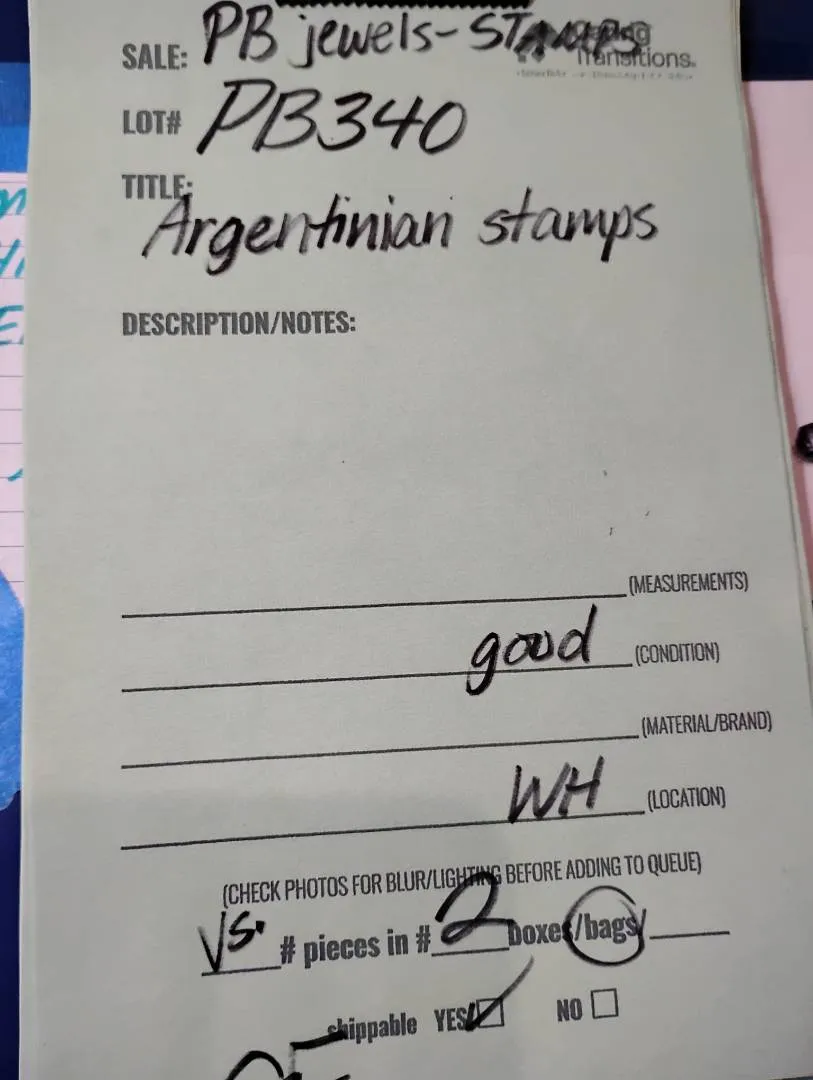 SALE: PB jewels- STAMPS
Transitions.
LOT# PB340
TITLE:
Argentinian stamps
DESCRIPTION/NOTES:
(MEASUREMENTS)
good (CONDITION)
(MATERIAL/BRAND)
WH (LOCATION)
(CHECK PHOTOS FOR BLUR/LIGHTING BEFORE ADDING TO QUEUE)
VS. # pieces in # 2 boxes/bags/
shippable YES NO